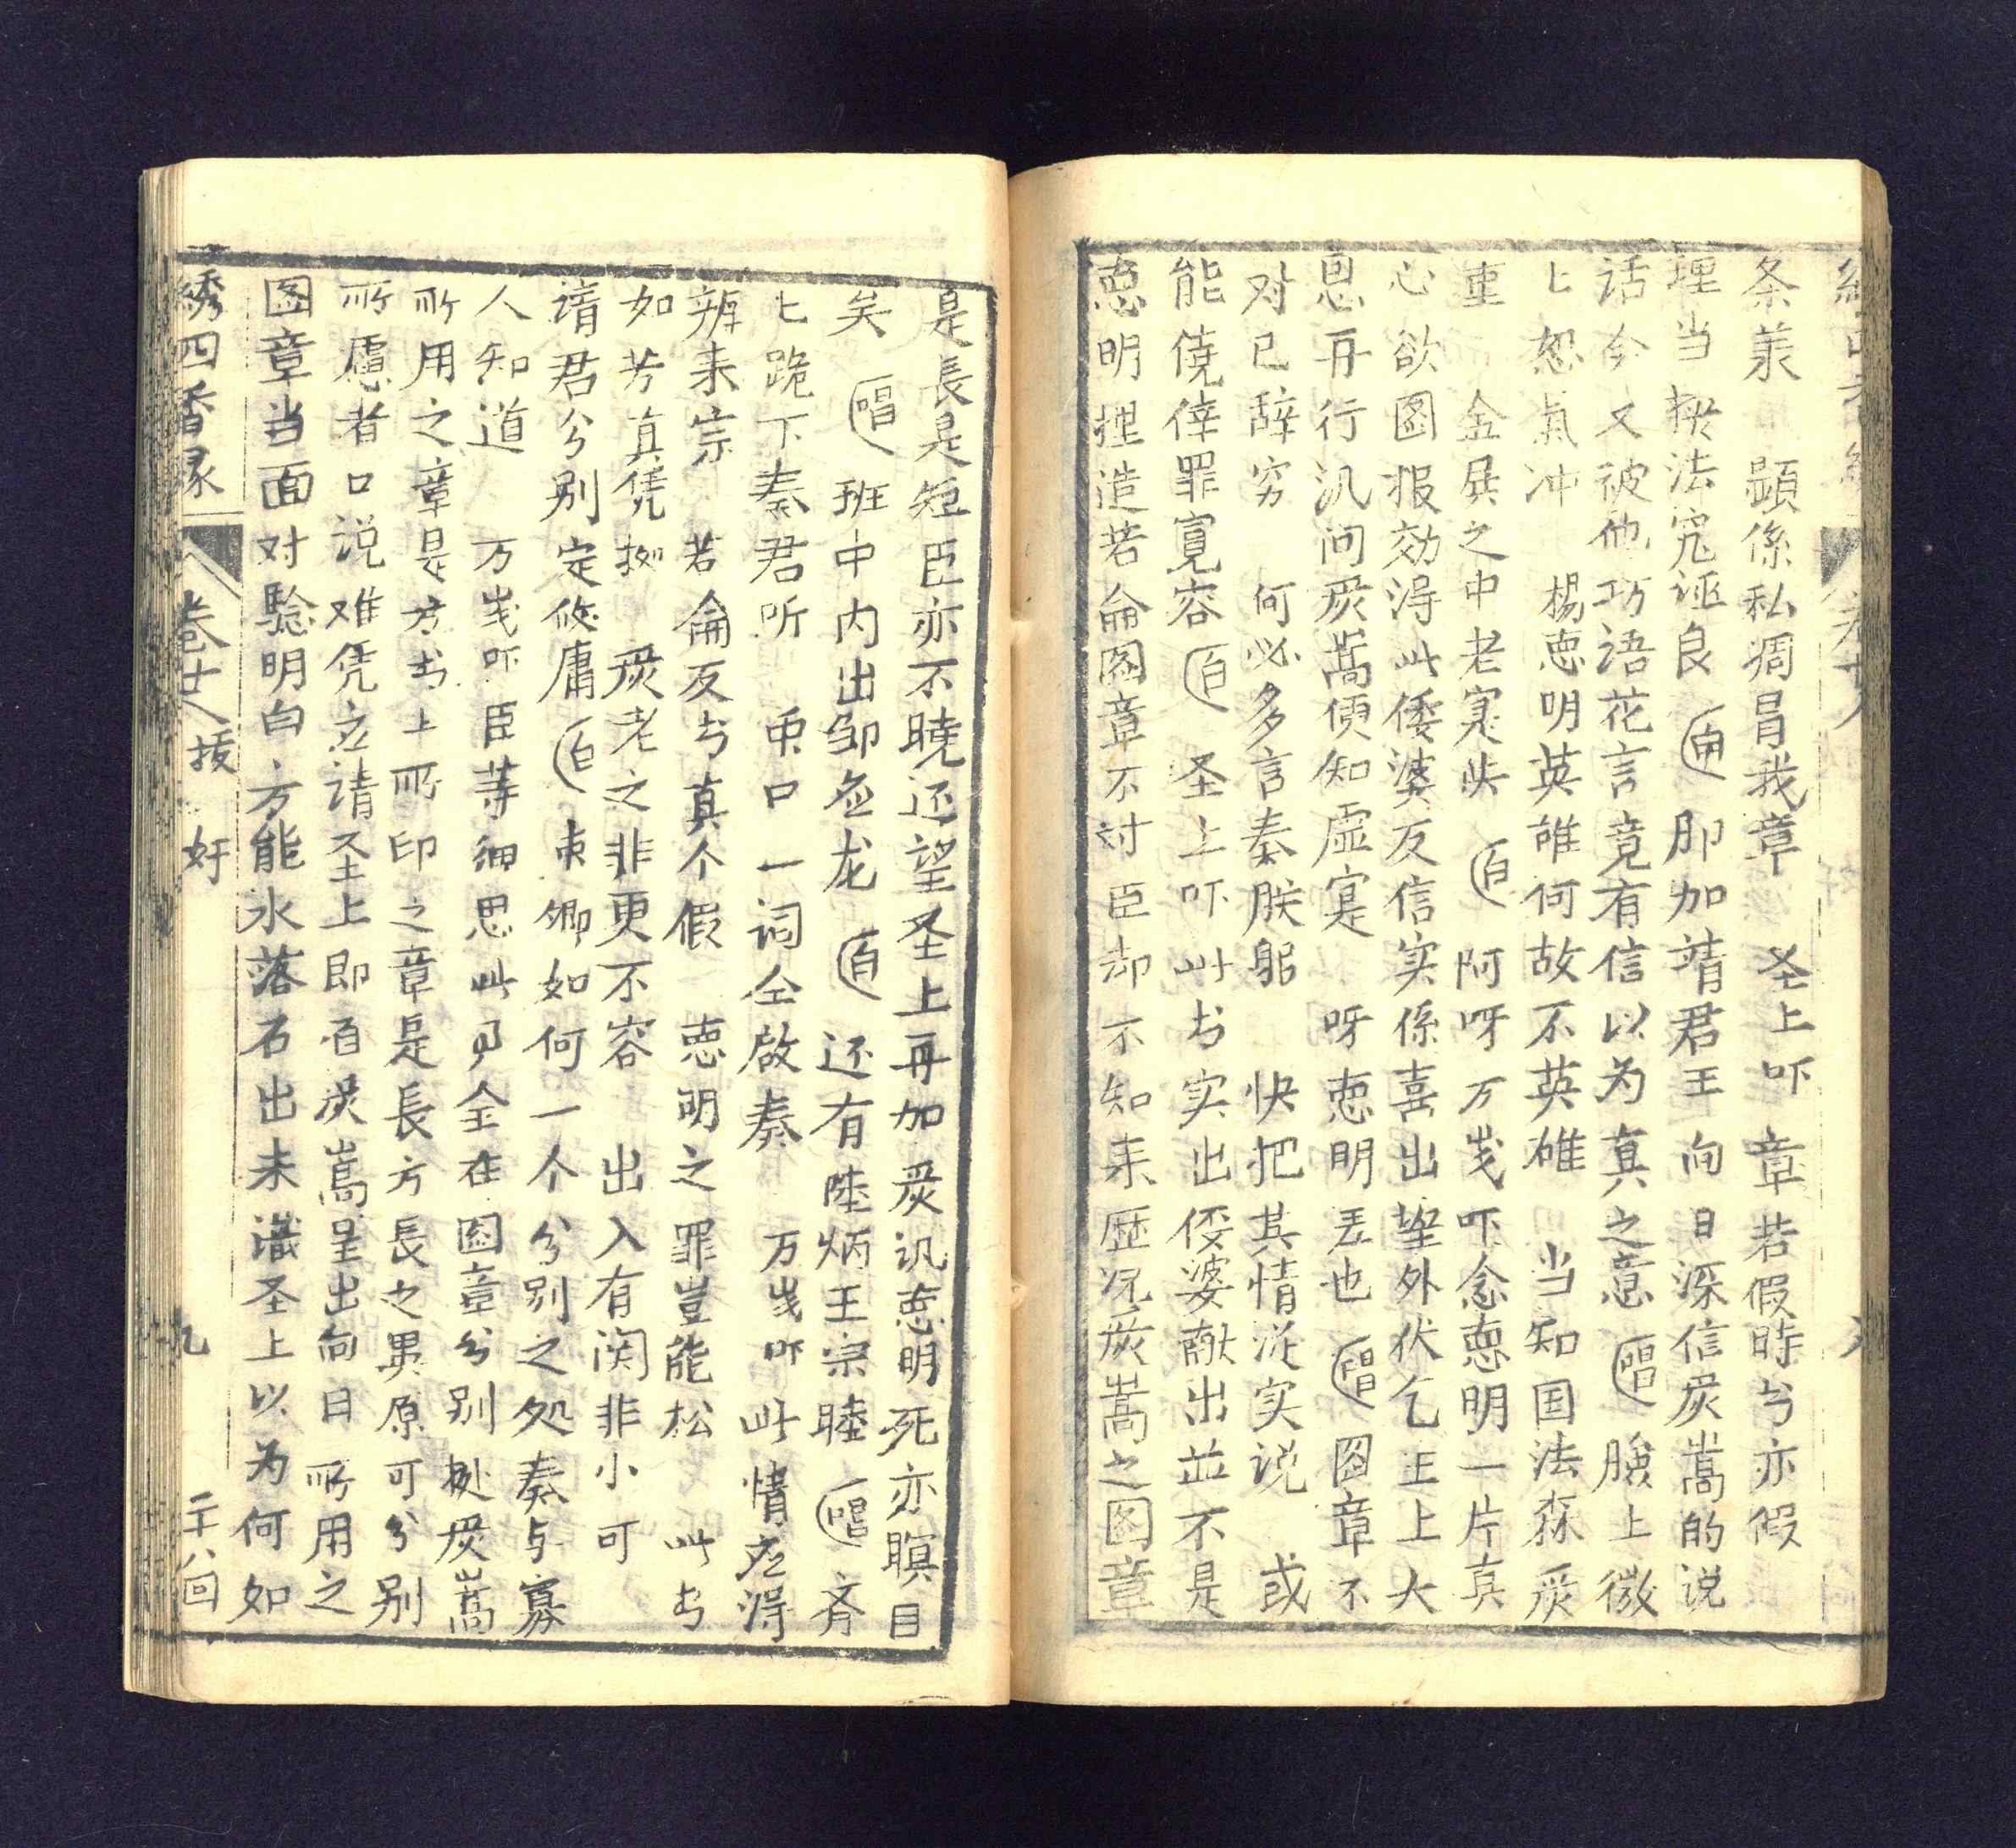 条来　顕係私凋冒我章　圣上吓　章若假時兮亦假
理当按法究誣良　(甶)　即加請君王　向日深信炭嵩的说
话今又被他巧语花言竟有信以为真之意　(唱)　腋上微
匕怒氣冲　楊悳明英誰何故不英雄　当知国法森炭
重　金展之中老寔些　(白)　阿呀万岁吓念悳明一片真
心欲图报効淂此倭婆反信实係喜出望外伏乞王上大
恩再行汎问炭嵩便知虚寔　呀悳明丟也　(唱)　图章不
对已辞穷　何必多言奏朕躬　快把其情従实说　或
能僥倖罪寬容　(白)　圣上吓此书实出倭婆献出並不是
悳明捏造若侖图章不对臣却不知来歷况炭嵩之图章
是長是短臣亦不曉还望圣上再加炭汎悳明死亦瞑目
矣　(唱)　班中内出邹应龙　(白)　还有陸炳王宗睦　(唱)　斉
匕跪下奏君听　甩口一词仝啟奏　万岁吓此情应淂
辨来宗　若侖反书真个假　悳明之罪豈能松　此书
如芳真凭拠　炭老之非更不容　出入有関非小可
请君分别定攸庸　(白)　朿卿如何一个分别之処奏与寡
人知道　万岁吓臣等細思此事全在图章分别拠炭嵩
所用之章是方书上所印之章是長方長之異原可分别
所慮者口说难凭应请圣上即着炭嵩呈出向日所用之
图章当面对騐明白方能水落石出未識圣上以为何如
綉四香缘　卷廿八　拔奸　九　二十八回